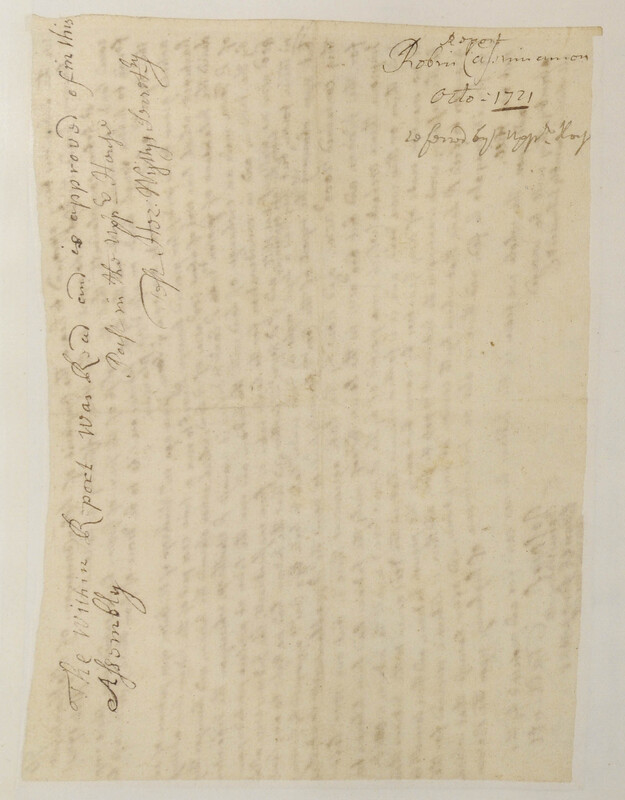 Report
Robin Cassinnamon
Octo = 1721
referred by yᵉ uppʳ Hous
The Within Report Was Read and is approved of in this
Assembly
Past in the Uppʳ House
Test Hez: Wyllys Secretry